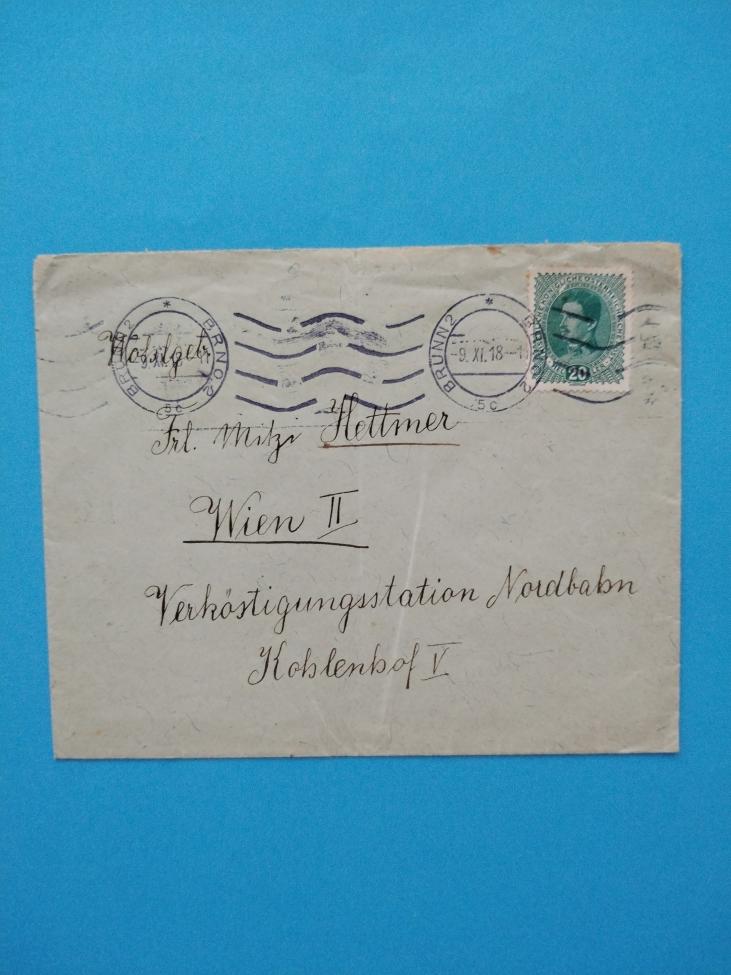 BRÜNN 2 * BRNO 2
9.XI.
5c
BRÜNN 2 * BRNO 2
-9.XI.18-11
5c
20
Frl. Mitzi Hettmer
Wien II
Verköstigungsstation Nordbahn
Kohlenhof V